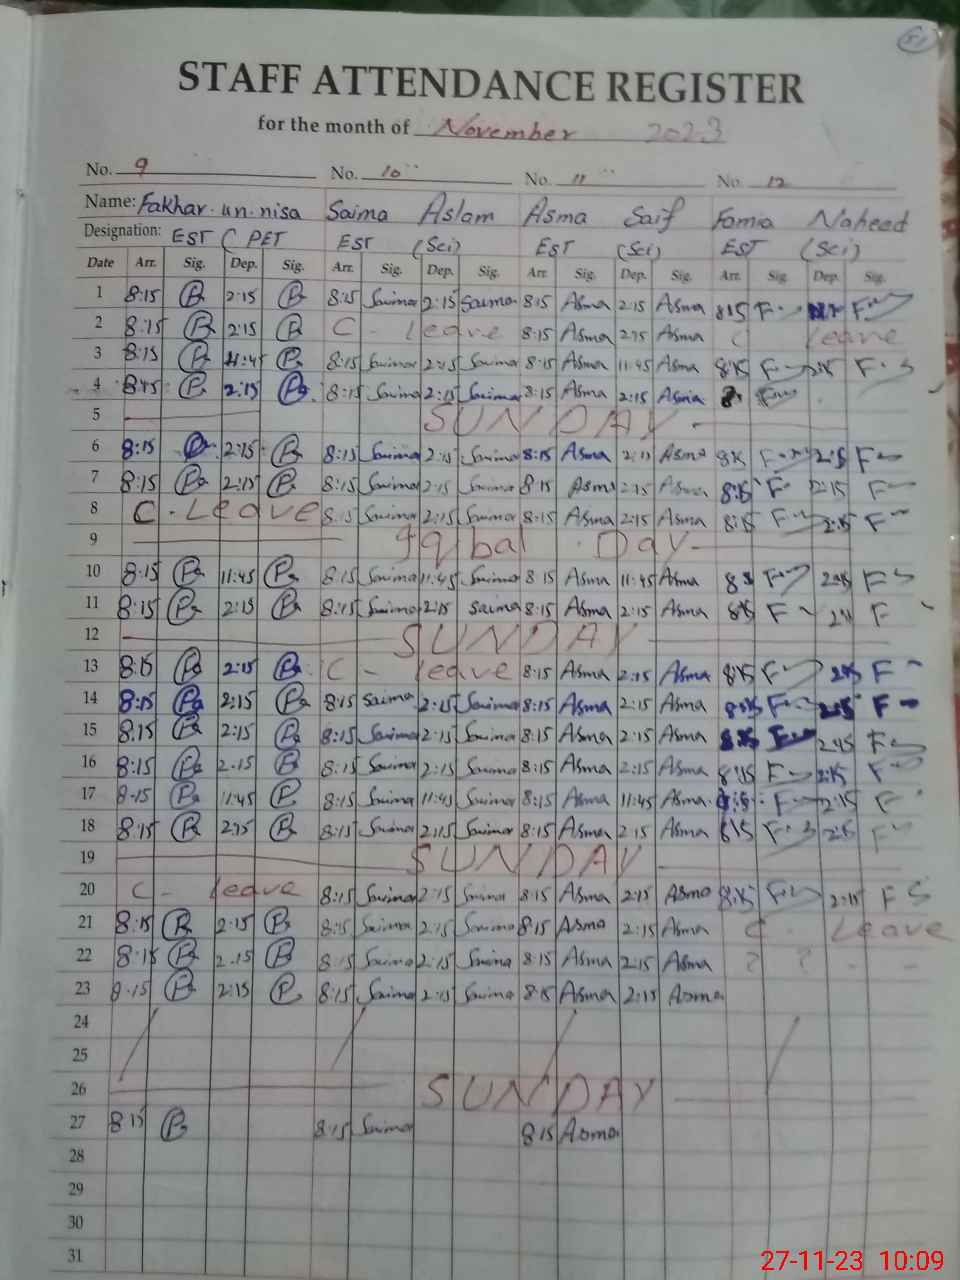 51
STAFF ATTENDANCE REGISTER
for the month of November 2023
No. 9 No. 10 No. 11 No. 12
Name: Fakhar.un.nisa Saima Aslam Asma Saif Famia Naheed
Designation: EST ( PET EST (Sci) EST (Sci) EST (Sci)
Date Arr. Sig. Dep. Sig. Arr. Sig. Dep. Sig. Arr. Sig. Dep. Sig. Arr. Sig. Dep. Sig.
1 8:15 2:15 8:15 Saima 2:15 Saima 8:15 Asma 2:15 Asma 8:15 F
2 8:15 2:15 C - leave 8:15 Asma 2:15 Asma C leave
3 8:15 11:45 8:15 Saima 2:15 Saima 8:15 Asma 11:45 Asma 8:15 F F
4 8:15 2:15 8:15 Saima 2:15 Saima 8:15 Asma 2:15 Asma
5 SUNDAY
6 8:15 2:15 8:15 Saima 2:15 Saima 8:15 Asma 2:15 Asma 8:15 F 2:15 F
7 8:15 2:15 8:15 Saima 2:15 Saima 8:15 Asma 2:15 Asma 8:15 F 2:15 F
8 C - Leave 8:15 Saima 2:15 Saima 8:15 Asma 2:15 Asma 8:15 F 2:15 F
9 Iqbal Day
10 8:15 11:45 8:15 Saima 11:45 Saima 8:15 Asma 11:45 Asma F F
11 8:15 2:15 8:15 Saima 2:15 Saima 8:15 Asma 2:15 Asma 8:15 F F
12 SUNDAY
13 8:15 2:15 C - leave 8:15 Asma 2:15 Asma 8:15 F F
14 8:15 2:15 8:15 Saima 2:15 Saima 8:15 Asma 2:15 Asma F F
15 8:15 2:15 8:15 Saima 2:15 Saima 8:15 Asma 2:15 Asma F
16 8:15 2:15 8:15 Saima 2:15 Saima 8:15 Asma 2:15 Asma 8:15 F 2:15 F
17 8:15 11:45 8:15 Saima 11:45 Saima 8:15 Asma 11:45 Asma F 2:15 F
18 8:15 2:15 8:15 Saima 2:15 Saima 8:15 Asma 2:15 Asma 8:15 F F
19 SUNDAY
20 C - leave 8:15 Saima 2:15 Saima 8:15 Asma 2:15 Asma 8:15 F 2:15 F
21 8:15 2:15 8:15 Saima 2:15 Saima 8:15 Asma 2:15 Asma C - Leave
22 8:15 2:15 8:15 Saima 2:15 Saima 8:15 Asma 2:15 Asma ? ? - -
23 8:15 2:15 8:15 Saima 2:15 Saima 8:15 Asma 2:15 Asma
24
25
26 SUNDAY
27 8:15 8:15 Saima 8:15 Asma
28
29
30
31
27-11-23 10:09